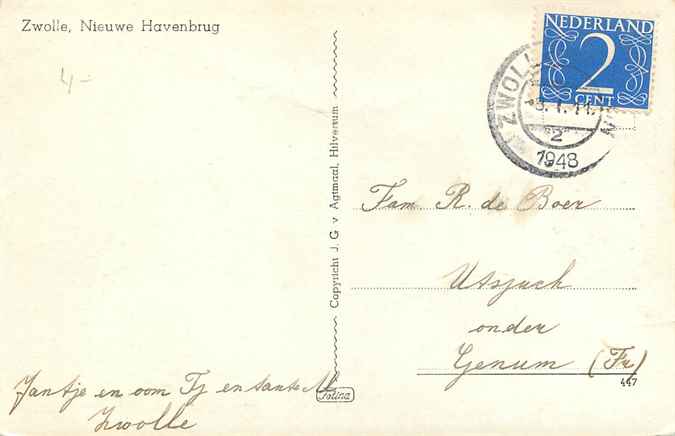 Zwolle, Nieuwe Havenbrug
4-
NEDERLAND
2
CENT
ZWOLLE
2
1948
Copyright J. G. v Agtmaal, Hilversum
Fam R. de Boer
Utsjuch
onder
Genum (Fr)
447
Jantje en oom Tj en tante M
Zwolle